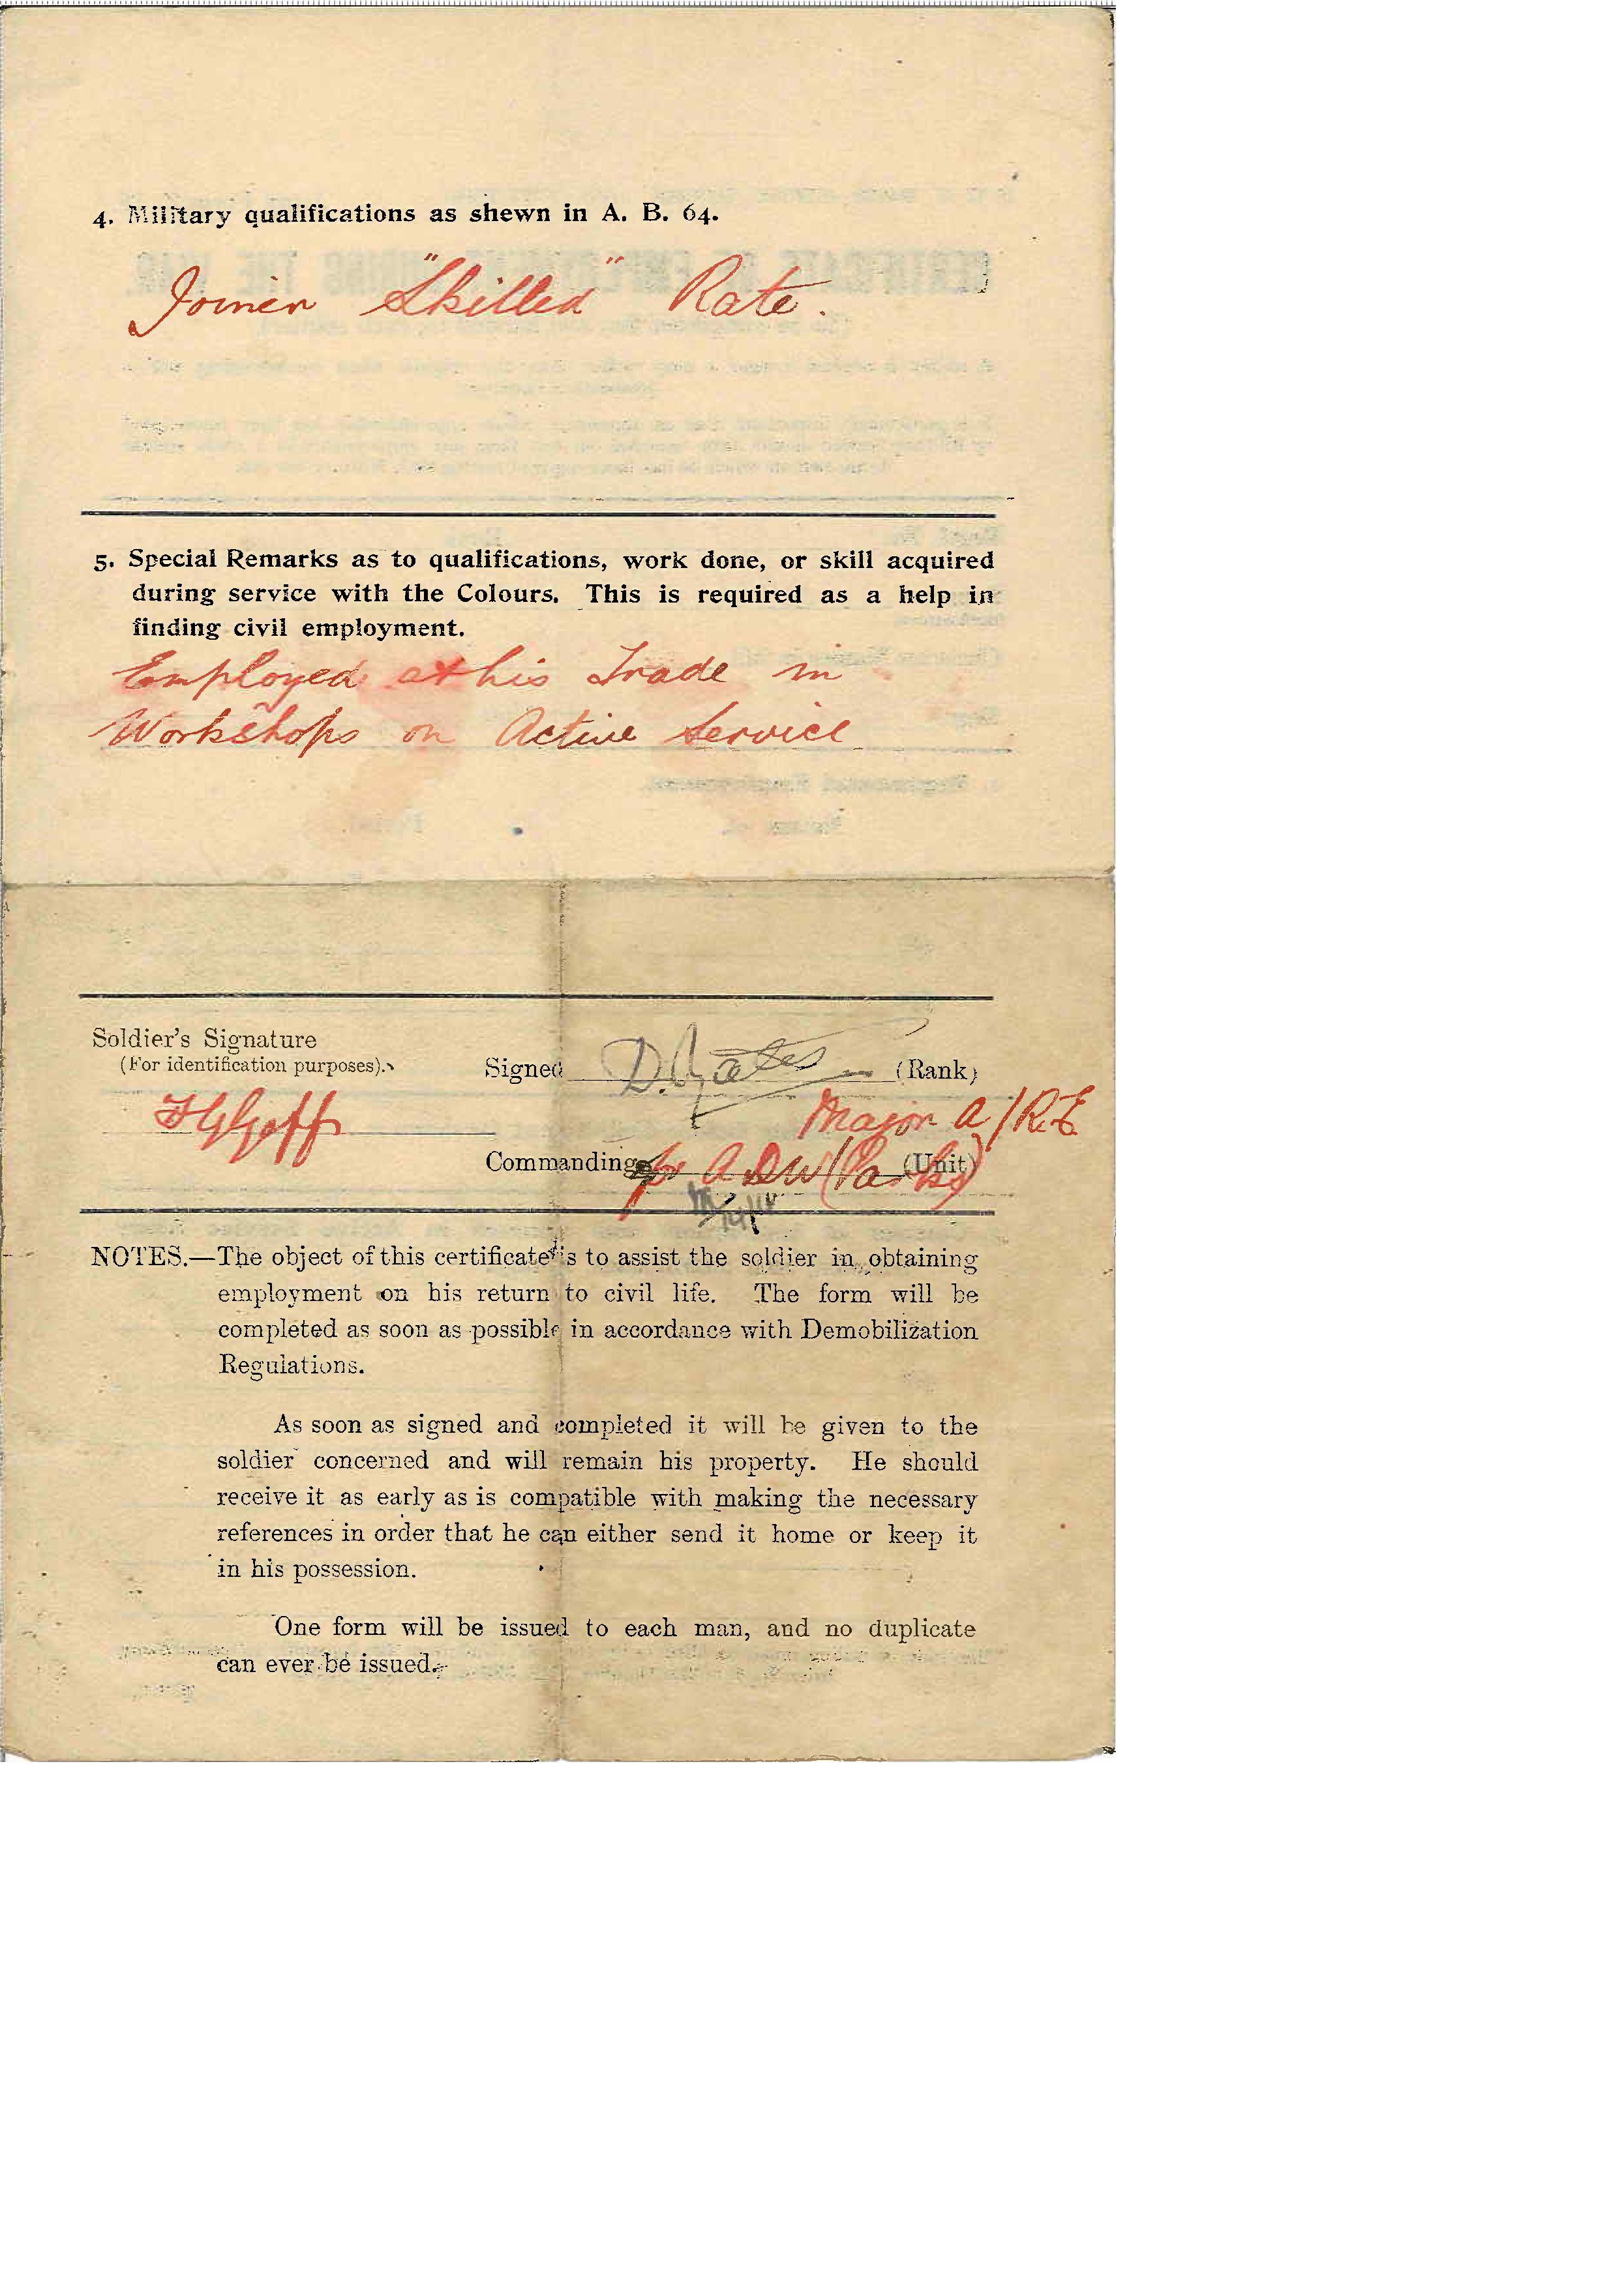 4. Military qualifications as shewn in A. B. 64.
Joiner "Skilled" Rate.
5. Special Remarks as to qualifications, work done, or skill acquired
during service with the Colours. This is required as a help in
finding civil employment.
Employed at his Trade in
Workshops on Active Service
Soldier's Signature
(For identification purposes).
Signed D. Yates (Rank)
Major A/R.E
Commanding for A D W (Parks) (Unit)
NOTES.—The object of this certificate is to assist the soldier in obtaining
employment on his return to civil life. The form will be
completed as soon as possible in accordance with Demobilization
Regulations.
As soon as signed and completed it will be given to the
soldier concerned and will remain his property. He should
receive it as early as is compatible with making the necessary
references in order that he can either send it home or keep it
in his possession.
One form will be issued to each man, and no duplicate
can ever be issued.